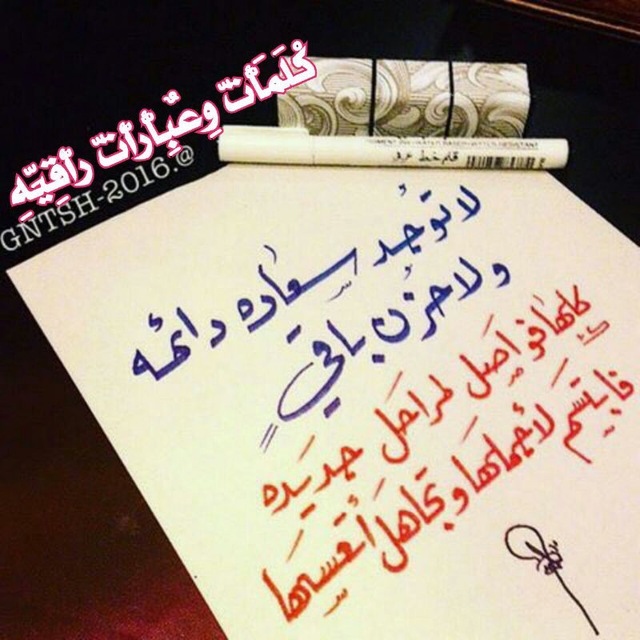 كلمات وعبارات راقيه
GNTSH-2016.@
قلم خط عربي
لا توجد سعاده دائمه
ولا حزن باقي
كلها فواصل لمراحل جديده
فابتسم لأجملها وتجاهل أتعسها